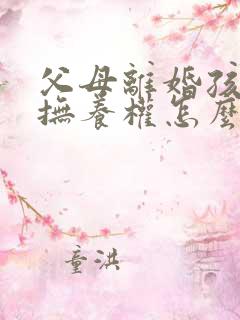 父母離婚孩
撫養權怎麼
童洪